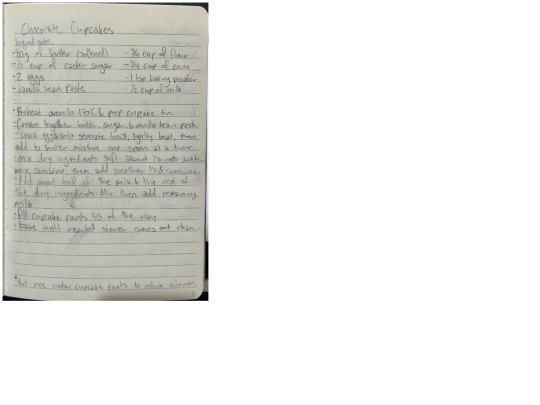 Chocolate Cupcakes
Ingredients
- 80g of butter (softened) - 3/4 cup of flour
- 1/2 cup of caster sugar - 1/4 cup of cocoa
- 2 eggs - 1 tsp baking powder
- vanilla bean paste - 1/2 cup of milk
- Preheat oven to 170°C & prep cupcake tin.
- Cream together butter, sugar & vanilla bean paste
- Crack eggs into separate bowl, lightly beat, then
add to butter mixture one spoon at a time.
- mix dry ingredients sift about 1/3 into butter
mix, combine, then add another 1/3 & combine
- Add about half of the milk & the rest of
the dry ingredients. Mix then add remaining
milk
- fill cupcake pants 2/3 of the way
- bake until inserted skewer comes out clean
* Put rice under cupcake pants to reduce